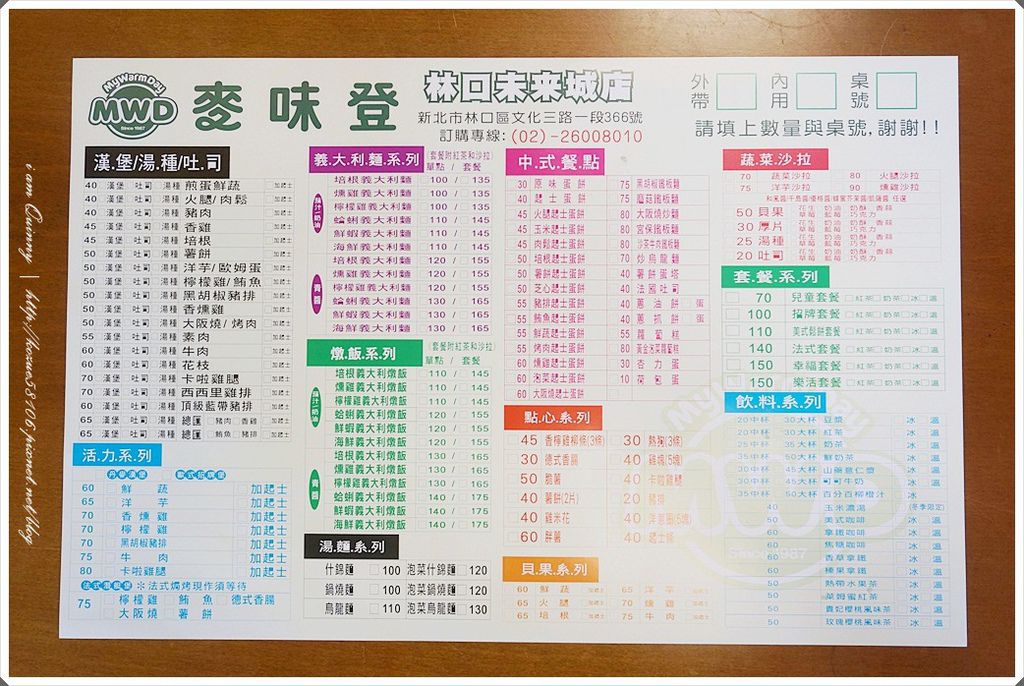 MyWarmDay
MWD
Since 1987
麥味登
林口未来城店
新北市林口區文化三路一段366號
訂購專線:(02)-26008010
外帶 內用 桌號
請填上數量與桌號,謝謝!!
漢.堡/湯.種/吐.司
40 漢堡 吐司 湯種 煎蛋鮮蔬 加起士
40 漢堡 吐司 湯種 火腿/肉鬆 加起士
40 漢堡 吐司 湯種 豬肉 加起士
45 漢堡 吐司 湯種 香雞 加起士
45 漢堡 吐司 湯種 培根 加起士
50 漢堡 吐司 湯種 薯餅 加起士
50 漢堡 吐司 湯種 洋芋/歐姆蛋 加起士
50 漢堡 吐司 湯種 檸檬雞/鮪魚 加起士
50 漢堡 吐司 湯種 黑胡椒豬排 加起士
50 漢堡 吐司 湯種 香燻雞 加起士
50 漢堡 吐司 湯種 大阪燒/烤肉 加起士
55 漢堡 吐司 湯種 素肉 加起士
60 漢堡 吐司 湯種 牛肉 加起士
60 漢堡 吐司 湯種 花枝 加起士
70 漢堡 吐司 湯種 卡啦雞腿 加起士
70 漢堡 吐司 湯種 西西里雞排 加起士
60 漢堡 吐司 湯種 頂級藍帶豬排 加起士
65 漢堡 吐司 湯種 總匯 豬肉 香雞
65 漢堡 吐司 湯種 總匯 鮪魚 豬排
活.力.系.列
60 鮮蔬 加起士
65 洋芋 加起士
70 香燻雞 加起士
70 檸檬雞 加起士
70 黑胡椒豬排 加起士
75 牛肉 加起士
80 卡啦雞腿 加起士
※法式焗烤現作須等待
75 檸檬雞 鮪魚 德式香腸
大阪燒 薯餅
義.大.利.麵.系.列 (套餐附紅茶和沙拉)
單點 / 套餐
培根義大利麵 100 / 135
燻雞義大利麵 100 / 135
檸檬雞義大利麵 100 / 135
蛤蜊義大利麵 110 / 145
鮮蝦義大利麵 110 / 145
海鮮義大利麵 110 / 145
青醬
培根義大利麵 120 / 155
燻雞義大利麵 120 / 155
檸檬雞義大利麵 120 / 155
蛤蜊義大利麵 130 / 165
鮮蝦義大利麵 130 / 165
海鮮義大利麵 130 / 165
燉.飯.系.列 (套餐附紅茶和沙拉)
單點 / 套餐
培根義大利燉飯 110 / 145
燻雞義大利燉飯 110 / 145
檸檬雞義大利燉飯 110 / 145
蛤蜊義大利燉飯 120 / 155
鮮蝦義大利燉飯 120 / 155
海鮮義大利燉飯 120 / 155
青醬
培根義大利燉飯 130 / 165
燻雞義大利燉飯 130 / 165
檸檬雞義大利燉飯 130 / 165
蛤蜊義大利燉飯 140 / 175
鮮蝦義大利燉飯 140 / 175
海鮮義大利燉飯 140 / 175
湯.麵.系.列
什錦麵 100 泡菜什錦麵 120
鍋燒麵 100 泡菜鍋燒麵 120
烏龍麵 110 泡菜烏龍麵 130
中.式.餐.點
30 原味蛋餅 75 黑胡椒鐵板麵
40 起士蛋餅 75 蘑菇鐵板麵
45 火腿起士蛋餅 80 大阪燒炒麵
45 玉米起士蛋餅 80 宮保鐵板麵
45 肉鬆起士蛋餅 80 沙茶牛肉鐵板麵
50 培根起士蛋餅 70 炒烏龍麵
50 薯餅起士蛋餅 40 薯餅蛋塔
50 芝心起士蛋餅 40 法國吐司
55 豬排起士蛋餅 40 蔥油餅 蛋
55 鮪魚起士蛋餅 40 蔥抓餅 蛋
55 鮮蔬起士蛋餅 55 蘿蔔糕
55 烤肉起士蛋餅 80 黃金泡菜蘿蔔糕
60 燻雞起士蛋餅 30 杏力蛋
60 泡菜起士蛋餅 10 荷包蛋
60 大阪燒起士蛋餅
點.心.系.列
45 香檸雞柳條(3條) 30 熱狗(3條)
30 德式香腸 40 雞塊(5塊)
50 脆薯 40 卡啦雞腿
40 薯餅(2片) 20 豬排
40 雞米花 40 洋蔥圈(5塊)
60 胖薯 40 起士條
貝.果.系.列
60 鮮蔬 加起士 65 洋芋 加起士
65 火腿 加起士 70 燻雞 加起士
65 培根 加起士 75 牛肉 加起士
蔬.菜.沙.拉
70 蔬菜沙拉 80 火腿沙拉
75 洋芋沙拉 90 燻雞沙拉
50 貝果 花生 奶油 奶酥 香蒜
草莓 藍莓 巧克力
30 厚片 花生 奶油 奶酥 香蒜
草莓 藍莓 巧克力
25 湯種 花生 奶油 奶酥 香蒜
草莓 藍莓 巧克力
20 吐司 花生 奶油 奶酥 香蒜
草莓 藍莓 巧克力
套.餐.系.列
70 兒童套餐 紅茶 奶茶 冰 溫
100 招牌套餐 紅茶 奶茶 冰 溫
110 美式鬆餅套餐 紅茶 奶茶 冰 溫
140 法式套餐 紅茶 奶茶 冰 溫
150 幸福套餐 紅茶 奶茶 冰 溫
150 樂活套餐 紅茶 奶茶 冰 溫
飲.料.系.列
20中杯 30大杯 豆漿 冰 溫
20中杯 30大杯 紅茶 冰 溫
25中杯 35大杯 奶茶 冰 溫
30中杯 45大杯 鮮奶茶 冰 溫
30中杯 45大杯 山藥薏仁漿 冰 溫
30中杯 45大杯 可可牛奶 冰 溫
35中杯 50大杯 百分百柳橙汁 冰
40 玉米濃湯 (冬季限定)
50 美式咖啡 冰 溫
60 拿鐵咖啡 冰 溫
60 焦糖咖啡 冰 溫
60 香草拿鐵 冰 溫
60 榛果拿鐵 冰 溫
50 熱帶水果茶 冰 溫
50 萊姆蜜紅茶 冰 溫
50 貴妃櫻桃風味茶 冰 溫
50 玫瑰櫻桃風味茶 冰 溫
Since 1987
i am Quinny | http://hesue5806.pixnet.net/blog